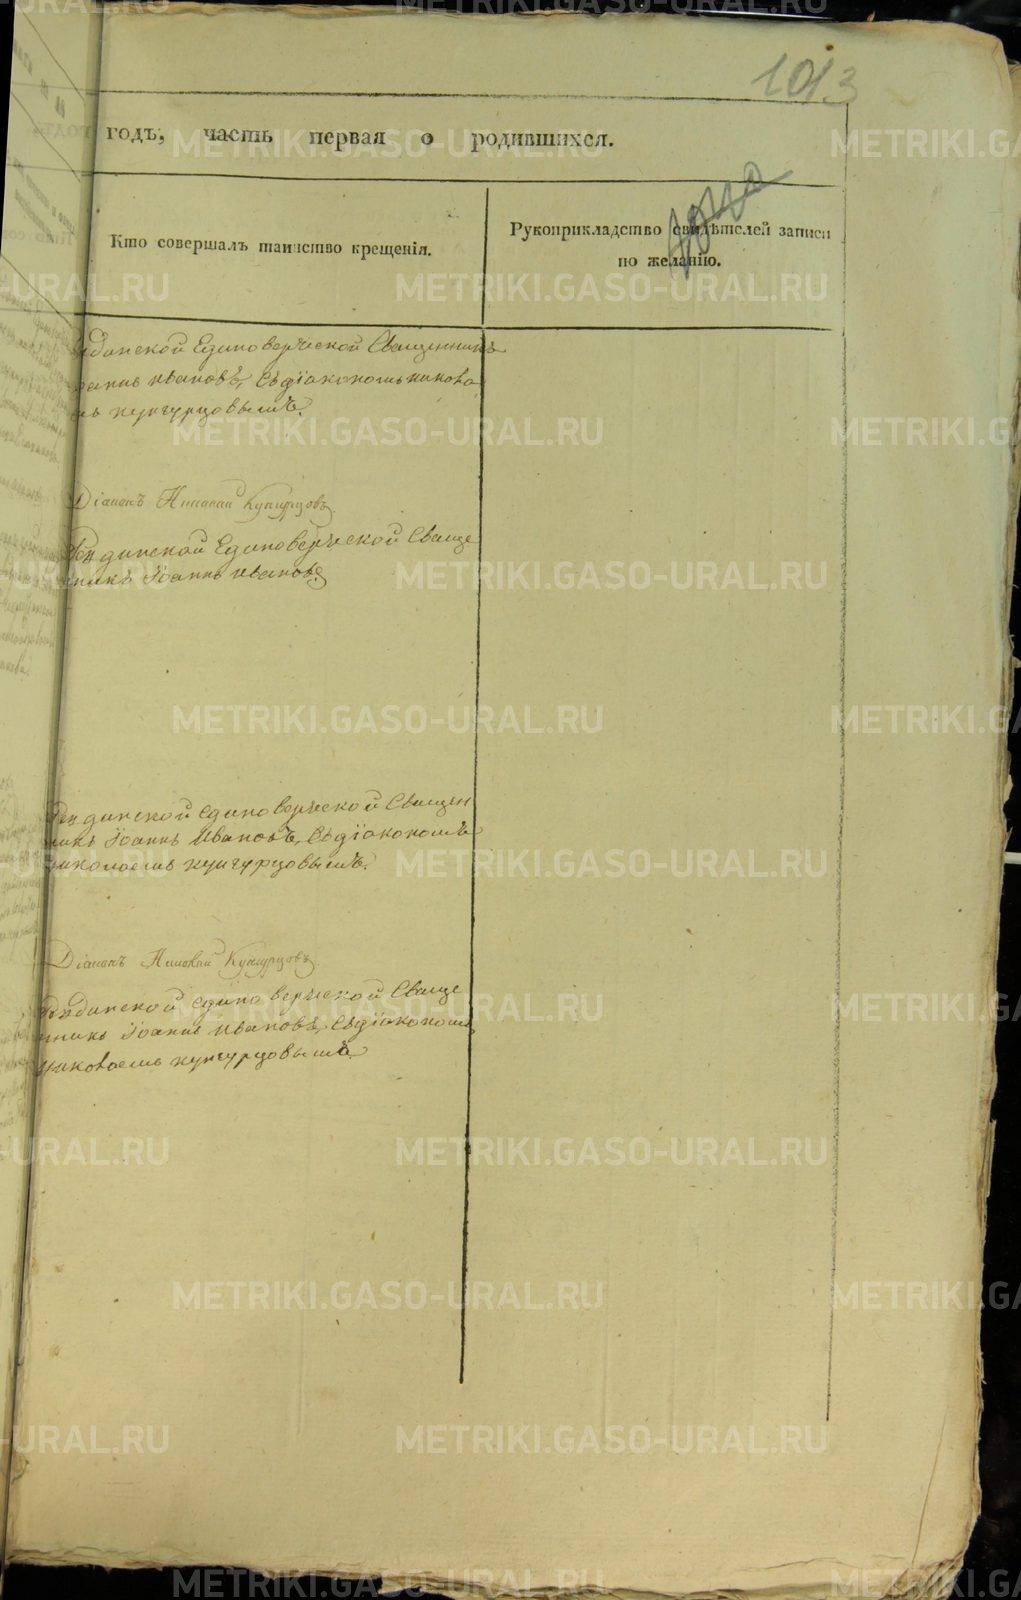 1013
годъ, часть первая о родившихся.
Кто совершалъ таинство крещенія.
Рукоприкладство свидѣтелей записи
по желанію.
Единоверческой Священникъ
Ивановъ, Съдіакономъ никола
Кунгурцовымъ.
Діаконъ Николай Кунгурцовъ
Единоверческой Свяще
никъ Іоаннъ Ивановъ
единоверческой Священ
никъ Іоаннъ Ивановъ, Съдіакономъ
николаемъ кунгурцовымъ.
Діаконъ Николай Кунгурцовъ
единоверческой Свяще
нникъ Іоаннъ Ивановъ, Съдіакономъ
николаемъ кунгурцовымъ
METRIKI.GASO-URAL.RU